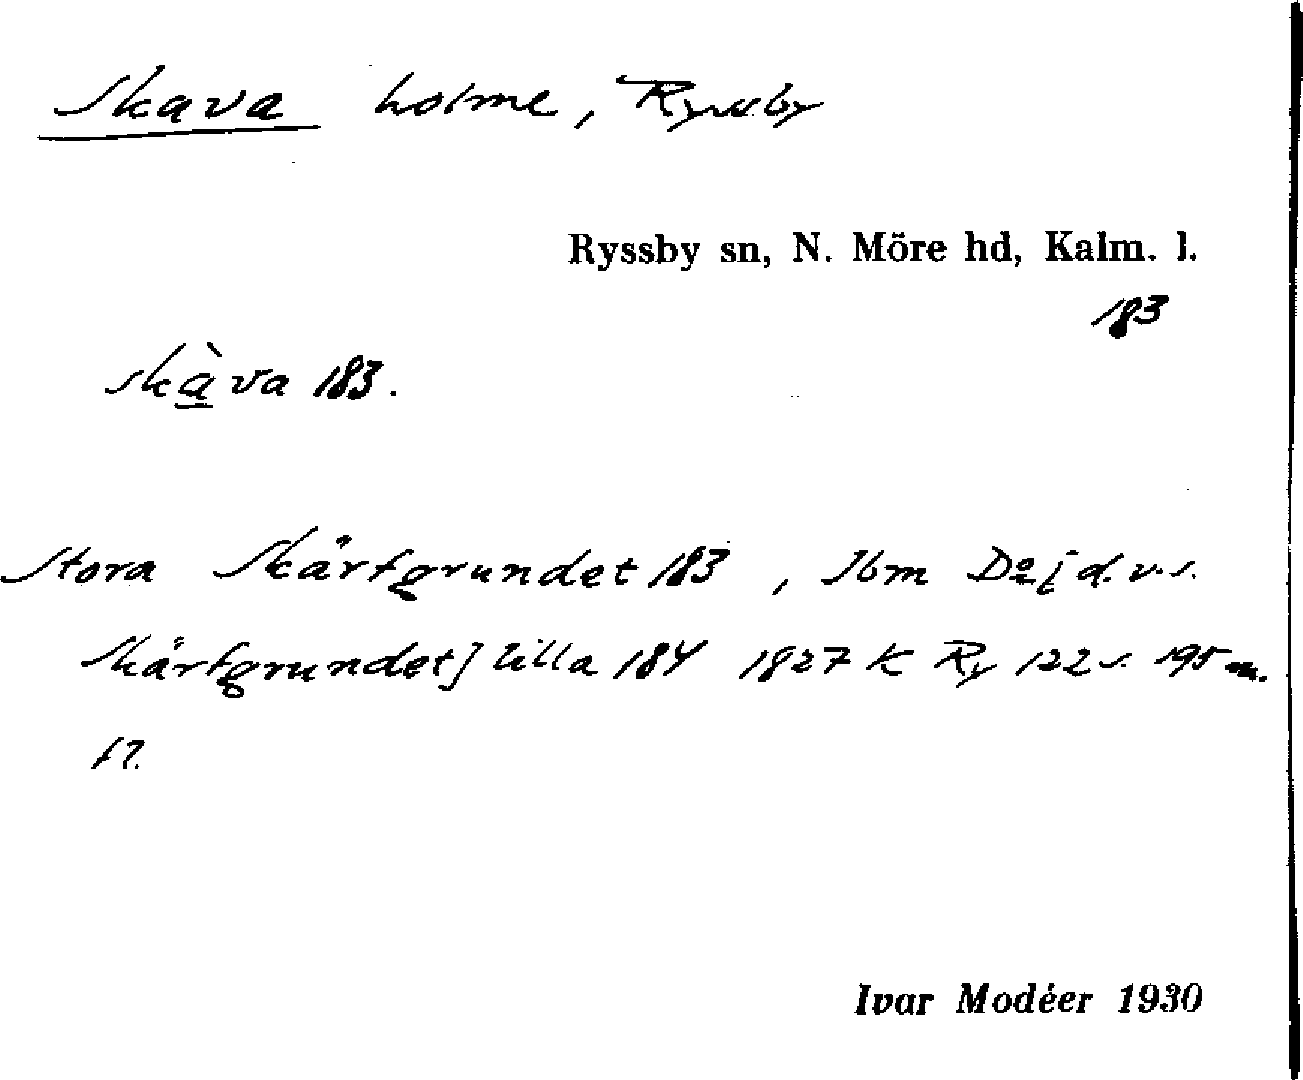 Skava holme, Ryssby
Ryssby sn, N. Möre hd, Kalm. l.
183
skàva 183.
Stora Skärfgrundet 183, Ibm Do [d.v.s.
Skärfgrundet] lilla 184 1827 K Ry 122 s. 195 m.
fl.
Ivar Modéer 1930